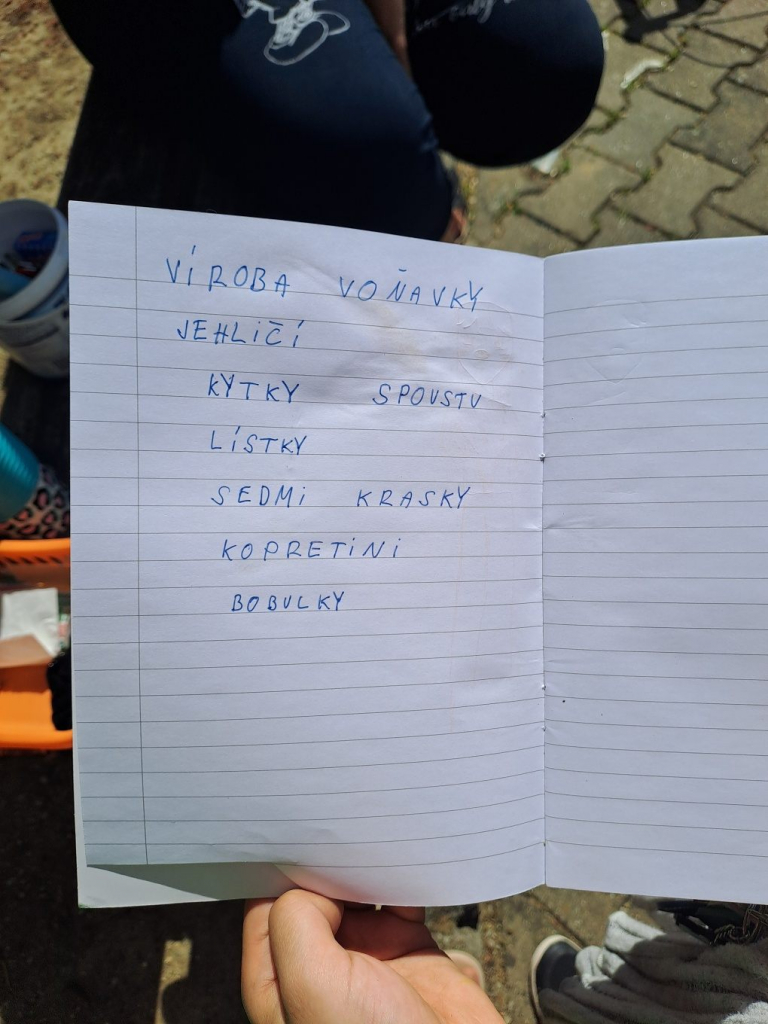 VÍROBA VOŇAVKY
JEHLIČÍ
KYTKY SPOUSTU
LÍSTKY
SEDMI KRASKY
KOPRETINI
BOBULKY